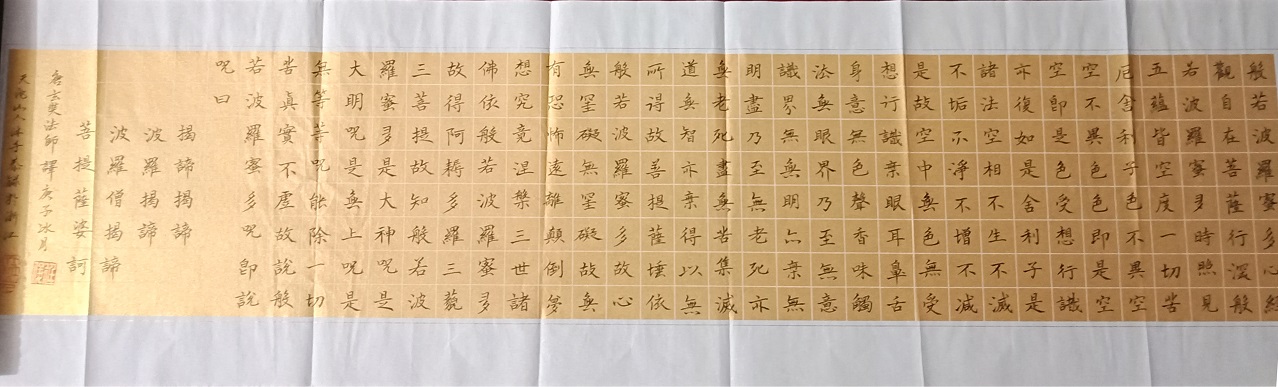 般若波羅蜜多心經
觀自在菩薩行深般
若波羅蜜多時照見
五蘊皆空度一切苦
厄舍利子色不異空
空不異色色即是空
空即是色受想行識
亦復如是舍利子是
諸法空相不生不滅
不垢不淨不增不減
是故空中無色無受
想行識無眼耳鼻舌
身意無色聲香味觸
法無眼界乃至無意
識界無無明亦無無
明盡乃至無老死亦
無老死盡無苦集滅
道無智亦無得以無
所得故菩提薩埵依
般若波羅蜜多故心
無罣礙無罣礙故無
有恐怖遠離顛倒夢
想究竟涅槃三世諸
佛依般若波羅蜜多
故得阿耨多羅三藐
三菩提故知般若波
羅蜜多是大神咒是
大明咒是無上咒是
無等等咒能除一切
苦真實不虛故說般
若波羅蜜多咒即說
咒曰
揭諦揭諦
波羅揭諦
波羅僧揭諦
菩提薩婆訶
唐玄奘法師譯庚子冰月
天山人林子錄於浙江